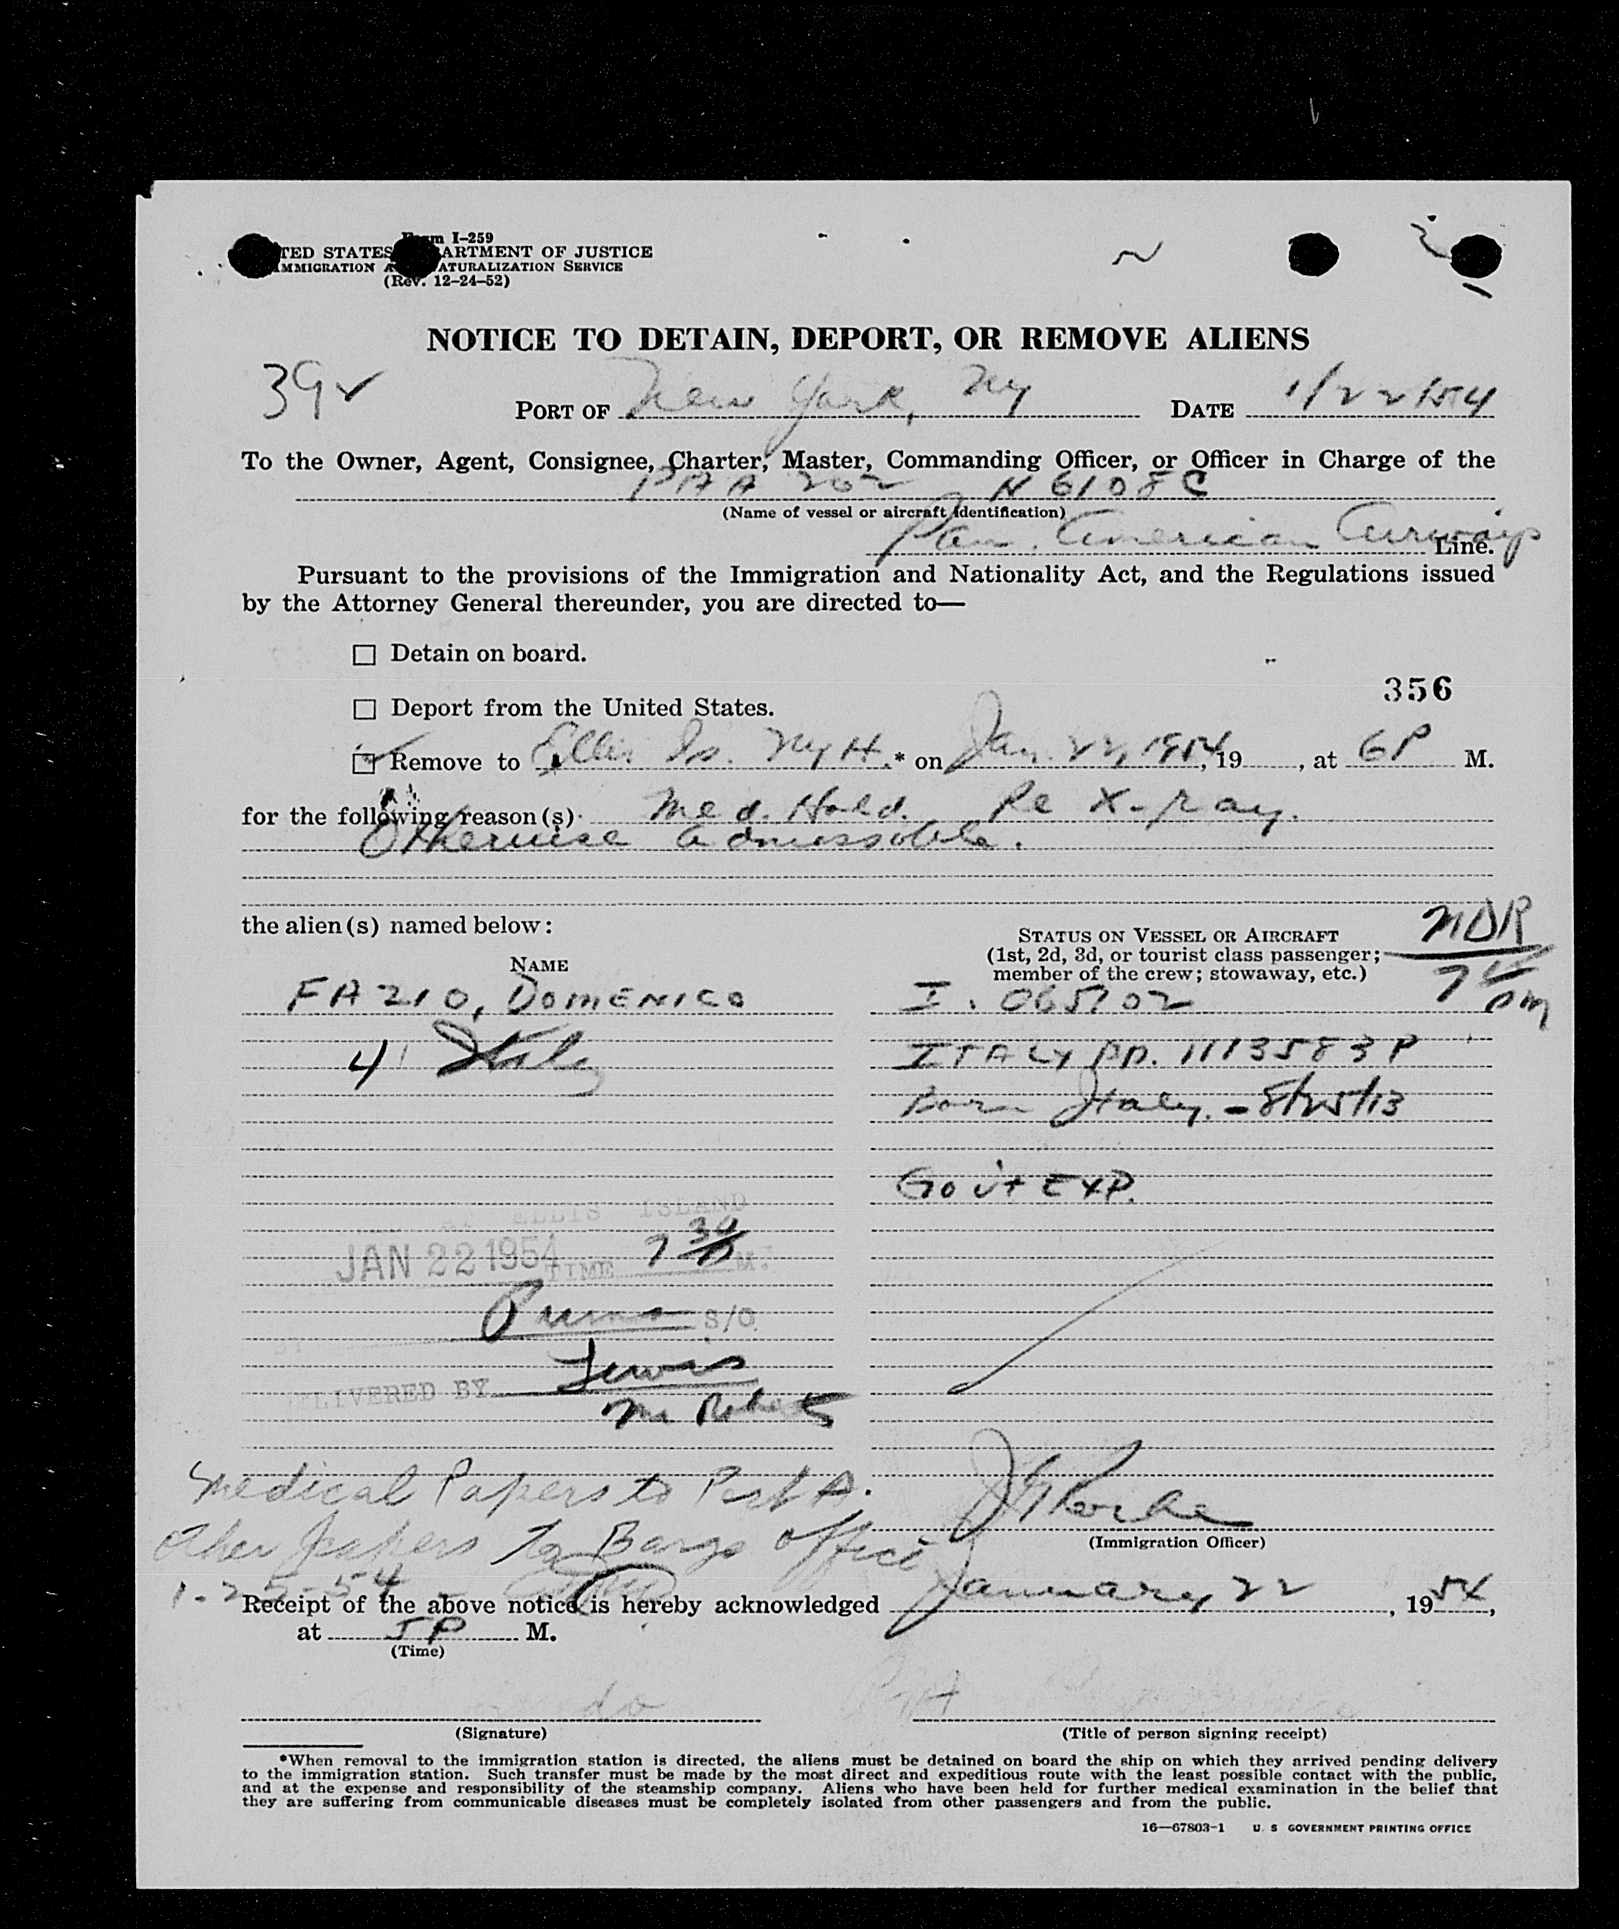 Form I-259
UNITED STATES DEPARTMENT OF JUSTICE
IMMIGRATION AND NATURALIZATION SERVICE
(Rev. 12-24-52)
NOTICE TO DETAIN, DEPORT, OR REMOVE ALIENS
39
PORT OF New York, NY DATE 1/22/54
To the Owner, Agent, Consignee, Charter, Master, Commanding Officer, or Officer in Charge of the
PAA 202 N 6108C
(Name of vessel or aircraft identification)
Pan American Airways Line.
Pursuant to the provisions of the Immigration and Nationality Act, and the Regulations issued
by the Attorney General thereunder, you are directed to—
☐ Detain on board.
356
☐ Deport from the United States.
☑ Remove to Ellis Is. NyH.* on Jan. 22, 1954, 19, at 6P M.
for the following reason(s) Med. Hold. Re X-ray.
Otherwise admissable.
the alien(s) named below:
NAME
STATUS ON VESSEL OR AIRCRAFT
(1st, 2d, 3d, or tourist class passenger;
member of the crew; stowaway, etc.)
MDR
FAZIO, DOMENICO
I. 065702
4 Italy
ITALY PP. 1113583P
Born Italy. - 8/25/13
Gov't EXP.
AT ELLIS ISLAND
JAN 22 1954 TIME 7 30 P M.
S/O
DELIVERED BY Lewis
Medical Papers to Post A.
Other papers to Barge Office
(Immigration Officer)
1-25-54
Receipt of the above notice is hereby acknowledged January 22, 1954,
at 5P M.
(Time)
(Signature)
(Title of person signing receipt)
*When removal to the immigration station is directed, the aliens must be detained on board the ship on which they arrived pending delivery
to the immigration station. Such transfer must be made by the most direct and expeditious route with the least possible contact with the public,
and at the expense and responsibility of the steamship company. Aliens who have been held for further medical examination in the belief that
they are suffering from communicable diseases must be completely isolated from other passengers and from the public.
16—67803-1 U. S. GOVERNMENT PRINTING OFFICE